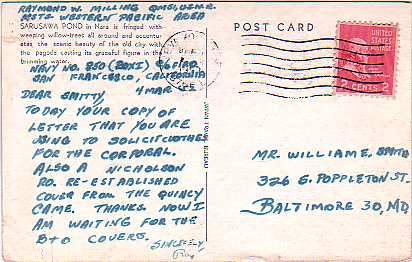 RAYMOND W. MILLING QMG1, USNR.
MSTS WESTERN PACIFIC AREA
SARUSAWA POND in Nara is fringed with
weeping willow-trees all around and accentu-
ates the scenic beauty of the old city with
the pagoda casting its graceful figure in the
brimming water.
NAVY NO. 850 (BOX5) % FPO
SAN FRANCISCO, CALIFORNIA
4 MAR
DEAR SMITTY,
TODAY YOUR COPY OF
LETTER THAT YOU ARE
USING TO SOLICIT CLOTHES
FOR THE CORPORAL.
ALSO A NICHOLSON
RO. RE-ESTABLISHED
COVER FROM THE QUINCY
CAME. THANKS NOW I
AM WAITING FOR THE
B+O COVERS.
SINCERELY,
Ray
POST CARD
UNITED
STATES
POSTAGE
2 CENTS 2
MR. WILLIAM E. SMITH
326 G. POPPLETON ST.
BALTIMORE 30, MD